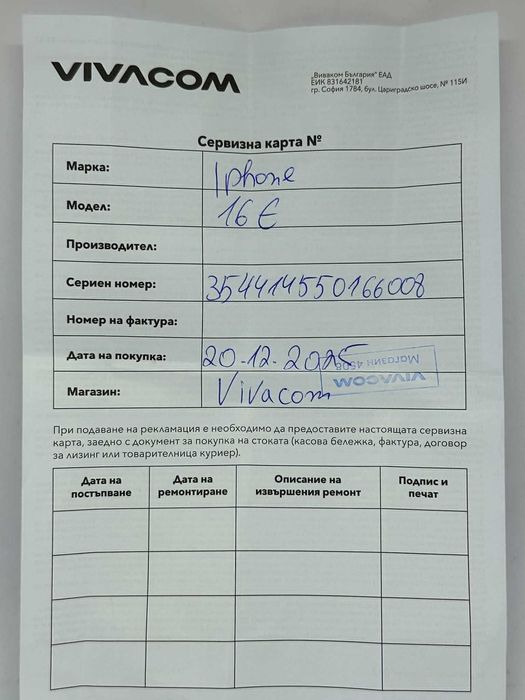 VIVACOM
„Виваком България“ ЕАД
ЕИК 831642181
гр. София 1784, бул. Цариградско шосе, № 115И
Сервизна карта №
Марка: Iphone
Модел: 16 E
Производител:
Сериен номер: 354414550166008
Номер на фактура:
Дата на покупка: 20.12.2025
Магазин 4508
VIVACOM
Магазин: Vivacom
При подаване на рекламация е необходимо да предоставите настоящата сервизна
карта, заедно с документ за покупка на стоката (касова бележка, фактура, договор
за лизинг или товарителница куриер).
Дата на постъпване
Дата на ремонтиране
Описание на извършения ремонт
Подпис и печат